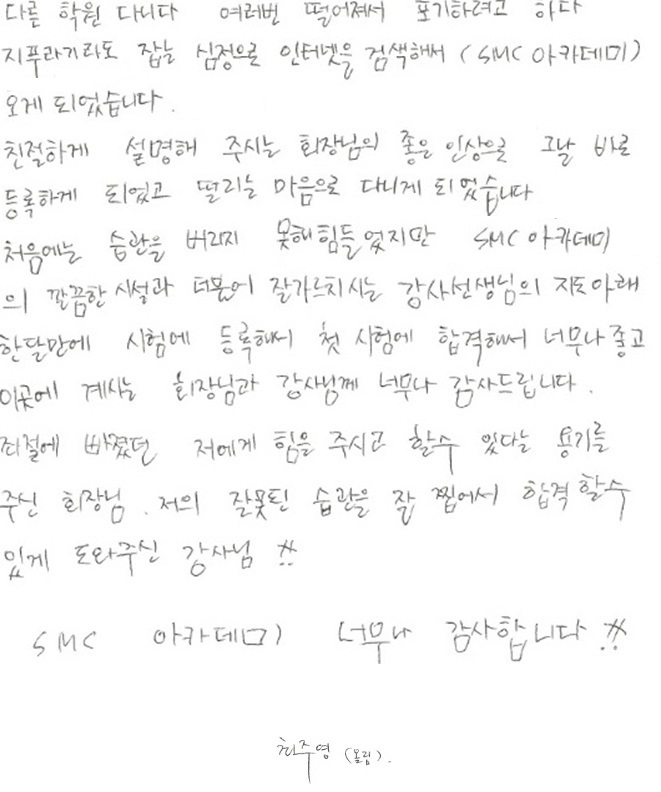 다른 학원 다니다 여러번 떨어져서 포기하려고 하다
지푸라기라도 잡는 심정으로 인터넷을 검색해서 (SMC 아카데미)
오게 되었습니다.
친절하게 설명해 주시는 회장님의 좋은 인상으로 그날 바로
등록하게 되었고 떨리는 마음으로 다니게 되었습니다
처음에는 습관을 버리지 못해 힘들었지만 SMC 아카데미
의 깔끔한 시설과 더불어 잘가르치시는 강사선생님의 지도아래
한달만에 시험에 등록해서 첫 시험에 합격해서 너무나 좋고
이곳에 계시는 회장님과 강사님께 너무나 감사드립니다.
좌절에 빠졌던 저에게 힘을 주시고 할수 있다는 용기를
주신 회장님. 저의 잘못된 습관을 잘 찝어서 합격할수
있게 도와주신 강사님 !!
SMC 아카데미 너무나 감사합니다 !!
최주영 (올림).